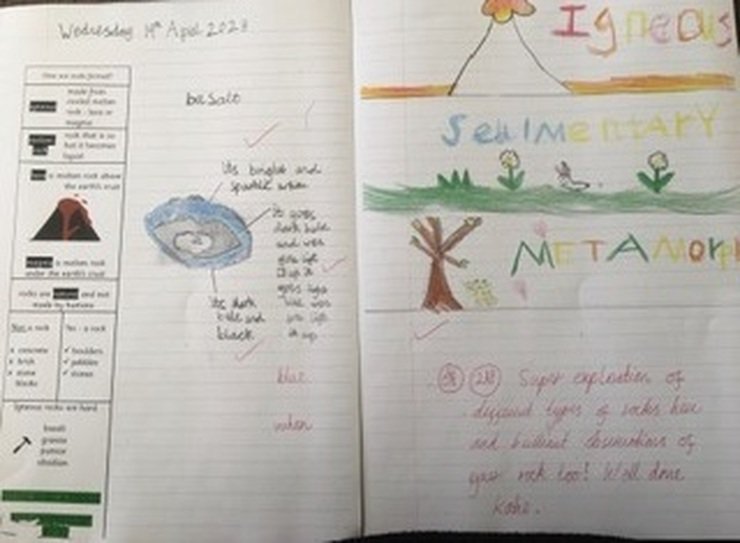 Wednesday 19th April 2023
How are rocks formed?
made from
cooled molten
rock - lava or
magma
rock that is so
hot it becomes
liquid
lava is molten rock above
the earth's crust
magma is molten rock
under the earth's crust
rocks are natural and not
made by humans
Not a rock
concrete
brick
stone
blocks
Yes - a rock
✓ boulders
✓ pebbles
✓ stones
Igneous rocks are hard
basalt
granite
pumice
obsidian
basalt
Its bright and
sparkle when
It goes
dark blue
and wen
you lift
it up it
goes light
blue
you lift
it up
Its dark
blue and
black
blue
when
Igneous
SEdIMEntARY
METAMORPH
Super exploration of
different types of rocks here
and brilliant observations of
your rock too! Well done
Katie.